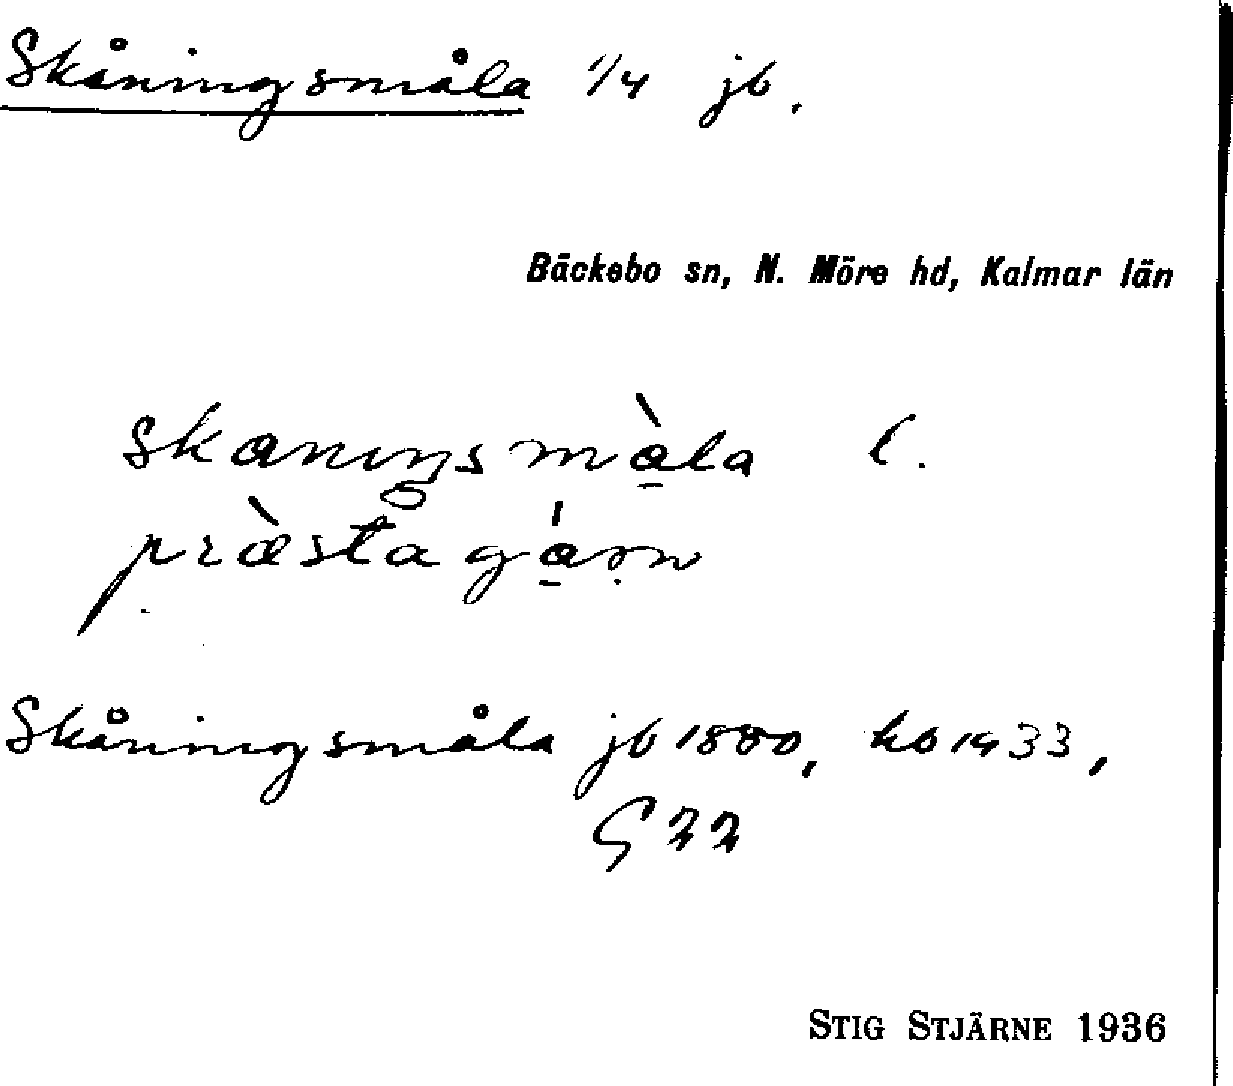 Skåningsmåla 1/4 jb.
Bäckebo sn, N. Möre hd, Kalmar län
skanıŋsmàla l.
præ̀stagán
Skåningsmåla jb 1880, kb 1933,
G 22
STIG STJÄRNE 1936